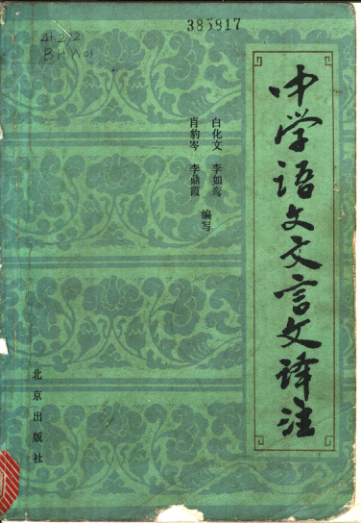 385817
41.272
中学语文文言文译注
白化文 李如鸾
肖豹岑 李鼎霞
编写
北京出版社